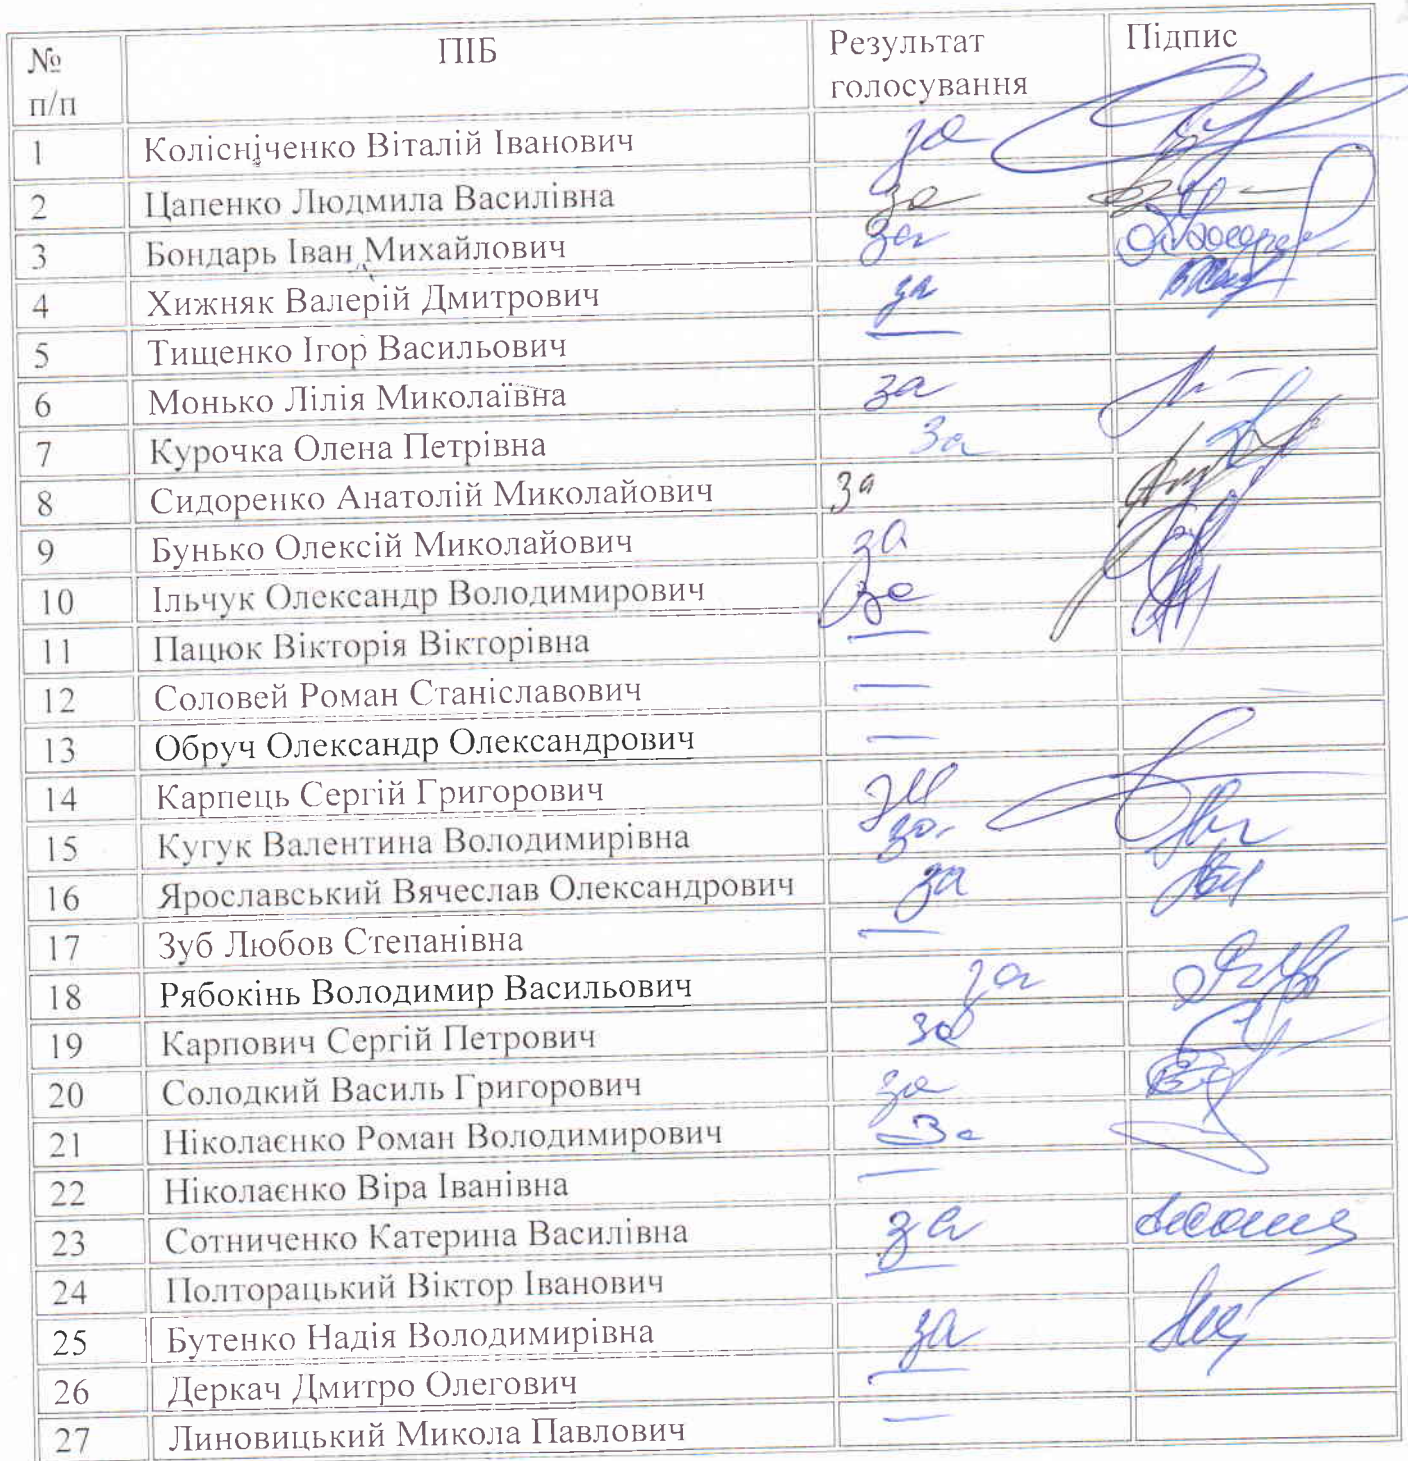 № п/п ПІБ Результат голосування Підпис
1 Колісніченко Віталій Іванович за
2 Цапенко Людмила Василівна за
3 Бондарь Іван Михайлович за
4 Хижняк Валерій Дмитрович за
5 Тищенко Ігор Васильович —
6 Монько Лілія Миколаївна за
7 Курочка Олена Петрівна За
8 Сидоренко Анатолій Миколайович за
9 Бунько Олексій Миколайович за
10 Ільчук Олександр Володимирович за
11 Пацюк Вікторія Вікторівна —
12 Соловей Роман Станіславович —
13 Обруч Олександр Олександрович —
14 Карпець Сергій Григорович за
15 Кугук Валентина Володимирівна за
16 Ярославський Вячеслав Олександрович за
17 Зуб Любов Степанівна —
18 Рябокінь Володимир Васильович за
19 Карпович Сергій Петрович за
20 Солодкий Василь Григорович за
21 Ніколаєнко Роман Володимирович За
22 Ніколаєнко Віра Іванівна —
23 Сотниченко Катерина Василівна за
24 Полторацький Віктор Іванович —
25 Бутенко Надія Володимирівна за
26 Деркач Дмитро Олегович —
27 Линовицький Микола Павлович —